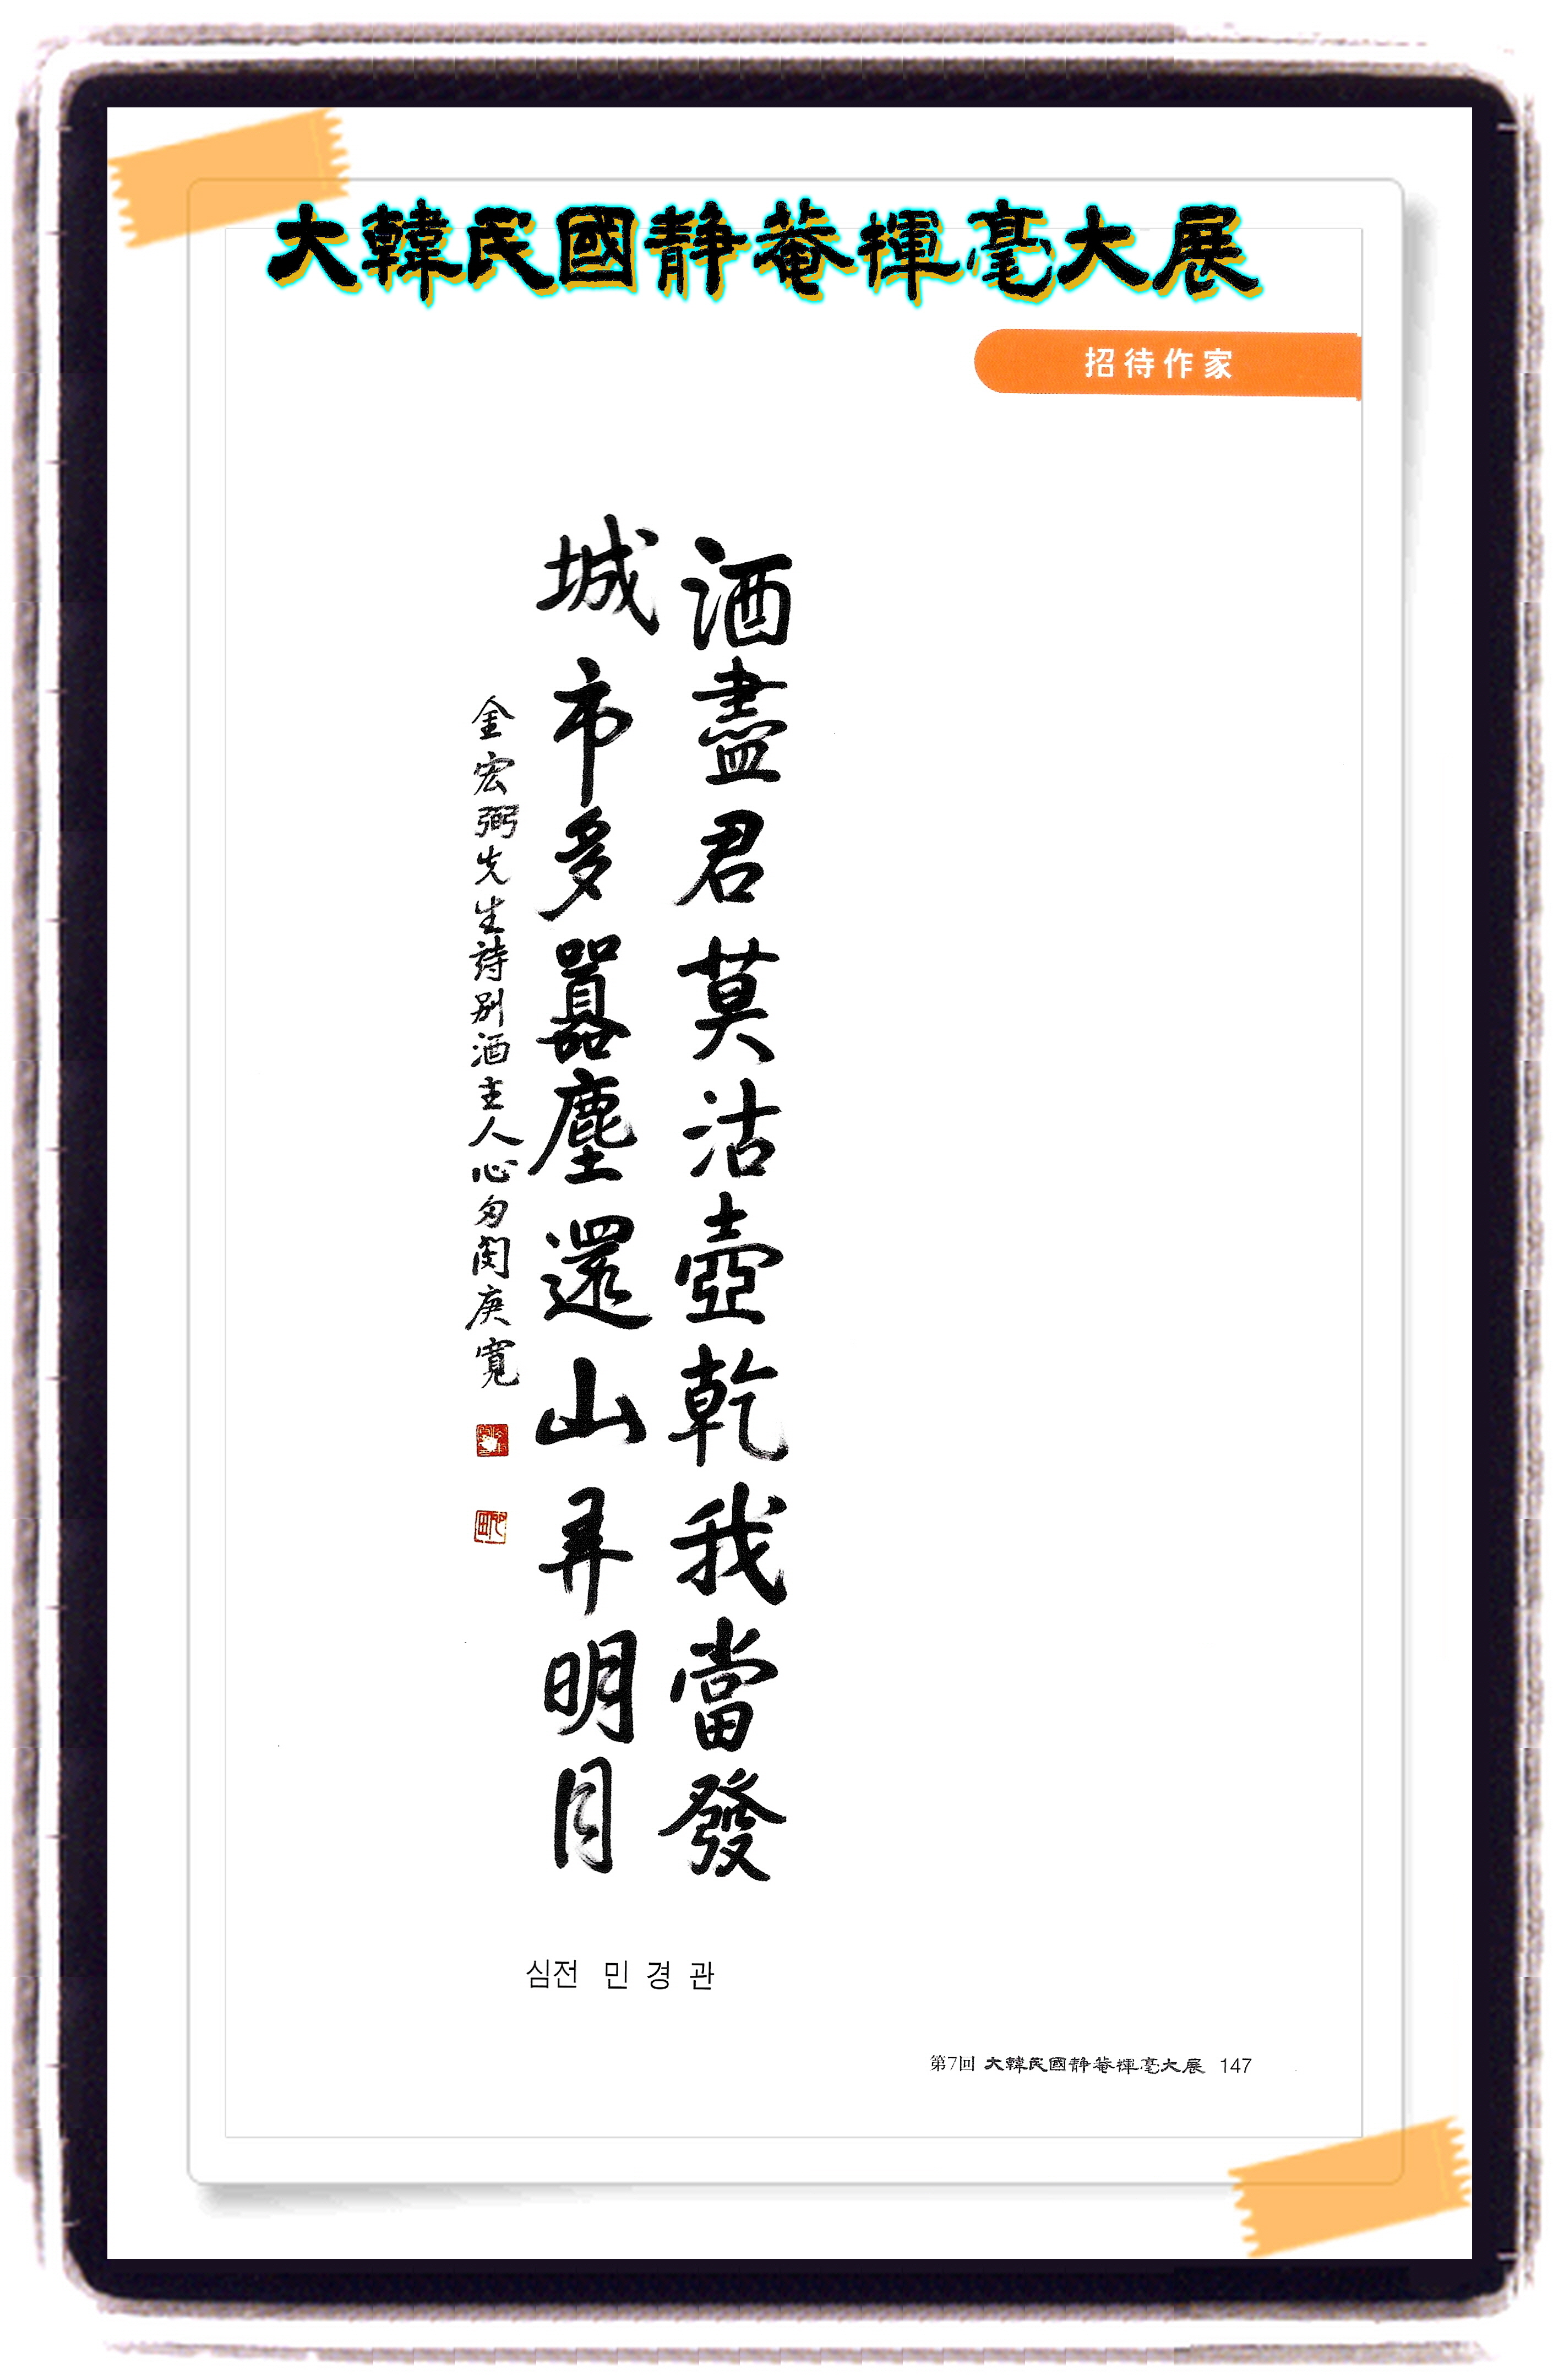 大韓民國靜菴揮毫大展
招待作家
酒盡君莫沽壺乾我當發
城市多囂塵還山弄明月
金宏弼先生詩別酒主人心田閔庚寬
심전 민 경 관
第7回 大韓民國靜菴揮毫大展 147